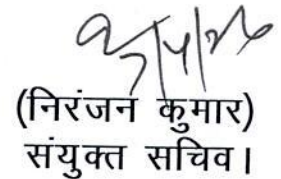 (निरंजन कुमार)
संयुक्त सचिव।